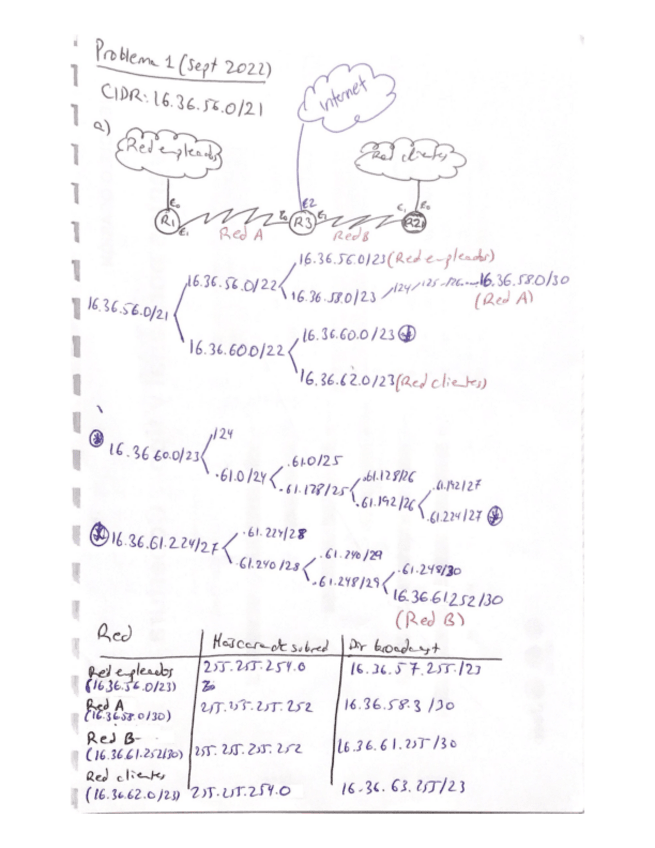 Problema 1 (Sept 2022)
CIDR: 16.36.56.0/21
Internet
a)
Red empleados
Red clientes
E0 E2 E0
R1 E1 E0 R3 E1 E1 R2
Red A Red B
16.36.56.0/23 (Red empleados)
16.36.56.0/22
16.36.58.0/23 /24 /25 /26 16.36.58.0/30
(Red A)
16.36.56.0/21
16.36.60.0/23
16.36.60.0/22
16.36.62.0/23 (Red clientes)
/24
16.36 60.0/23
.61.0/24
.61.0/25
.61.128/25
.61.128/26
.61.192/26
.61.192/27
.61.224/27
16.36.61.224/27
.61.224/28
.61.240/28
.61.240/29
.61.248/29
.61.248/30
16.36.61.252/30
(Red B)
Red Máscara de subred Dir broadcast
Red empleados 255.255.254.0 16.36.57.255/23
(16.36.56.0/23)
Red A 255.255.255.252 16.36.58.3 /30
(16.36.58.0/30)
Red B
(16.36.61.252/30) 255.255.255.252 16.36.61.255/30
Red clientes
(16.36.62.0/23) 255.255.254.0 16.36.63.255/23